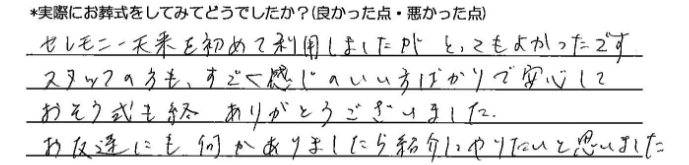 *実際にお葬式をしてみてどうでしたか？(良かった点・悪かった点)
セレモニー天来を初めて利用しましたが とってもよかったです
スタッフの方も、すごく感じのいい方ばかりで安心して
おそう式も終 ありがとうございました.
お友達にも何かありましたら紹介してやりたいと思いました